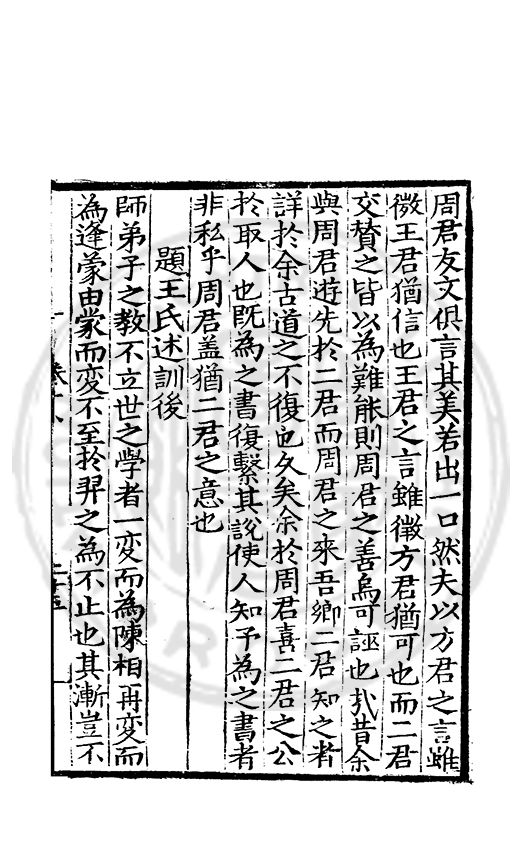 周君友文俱言其美若出一口然夫以方君之言雖
微王君猶信也王君之言雖微方君猶可也而二君
交賛之皆以為難能則周君之善烏可誣也抑昔余
與周君遊先於二君而周君之來吾鄉二君知之者
詳於余古道之不復也久矣余於周君喜二君之公
於取人也既為之書復繫其說使人知予為之書者
非私乎周君盖猶二君之意也
題王氏述訓後
師弟子之教不立世之學者一變而為陳相再變而
為逄蒙由蒙而変不至於羿之為不止也其漸豈不